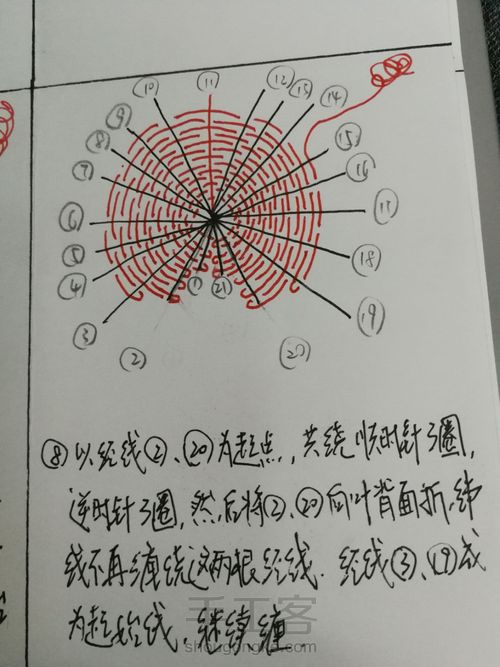 ⑪
⑩ ⑫ ⑬ ⑭
⑨ ⑮
⑧ ⑯
⑦
⑥ ⑰
⑤ ⑱
④ ① ㉑
③ ⑲
② ⑳
⑧以经线②、⑳为起点,共绕顺时针3圈,
逆时针3圈,然后将②、⑳向叶背面折,纬
线不再缠绕这两根经线.经线③、⑲成
为起始线,继续缠.
手工客
shougongke.com